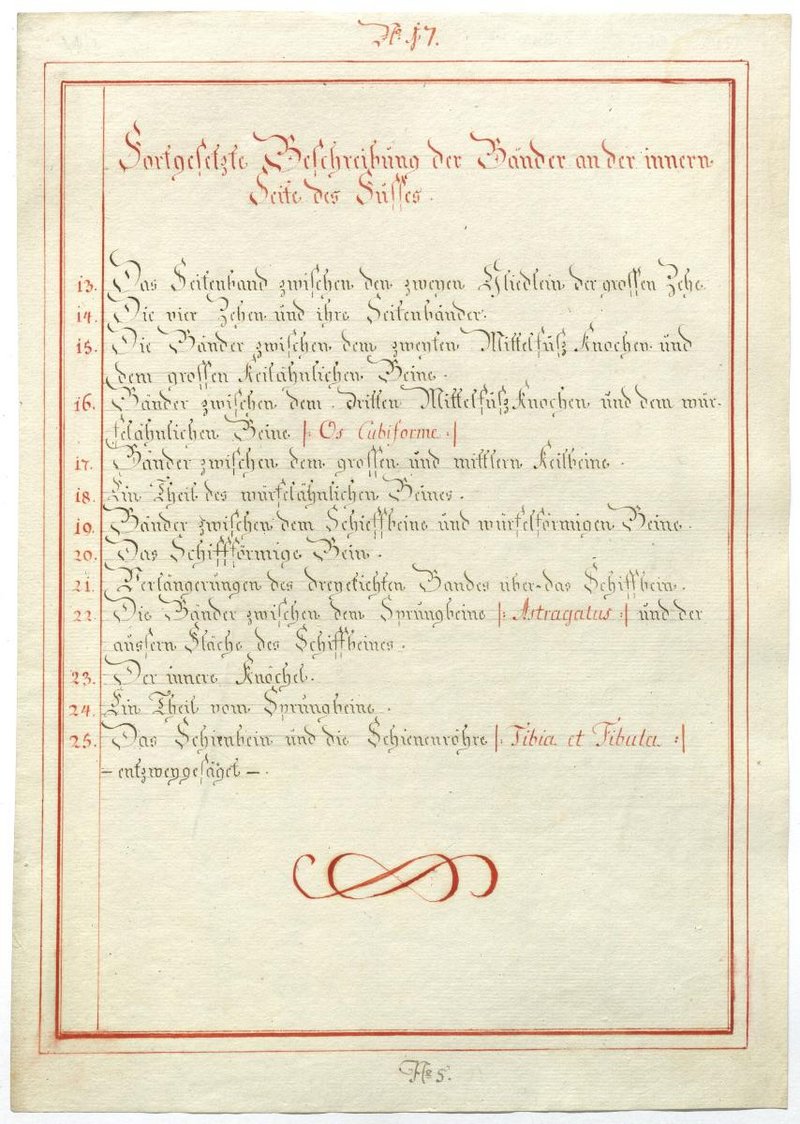 No. 17.
Fortgesetzte Beschreibung der Bänder an der innern
Seite des Füsses.
13. Das Seitenband zwischen den zweyen Gliedlein der grossen Zehe.
14. Die vier Zehen und ihre Seitenbänder.
15. Die Bänder zwischen dem zweyten Mittelfüsz Knochen und
dem grossen Keilähnlichen Beine.
16. Bänder zwischen dem dritten Mittelfüsz Knochen und dem wür-
felähnlichen Beine |: Os Cubiforme :|
17. Bänder zwischen dem grossen und mittlern Keilbeine.
18. Ein Theil des würfelähnlichen Beines.
19. Bänder zwischen dem Schieffbeine und würfelförmigen Beine.
20. Das Schiffförmige Bein.
21. Verlängerungen des dreyekichten Bandes über das Schiffbein.
22. Die Bänder zwischen dem Sprungbeine |: Astragalus :| und der
äussern Fläche des Schiffbeines.
23. Der innere Knöchel.
24. Ein Theil vom Sprungbeine.
25. Das Schienbein und die Schienenröhre |: Tibia et Fibula :|
– entzweygesäget –.
No 5.